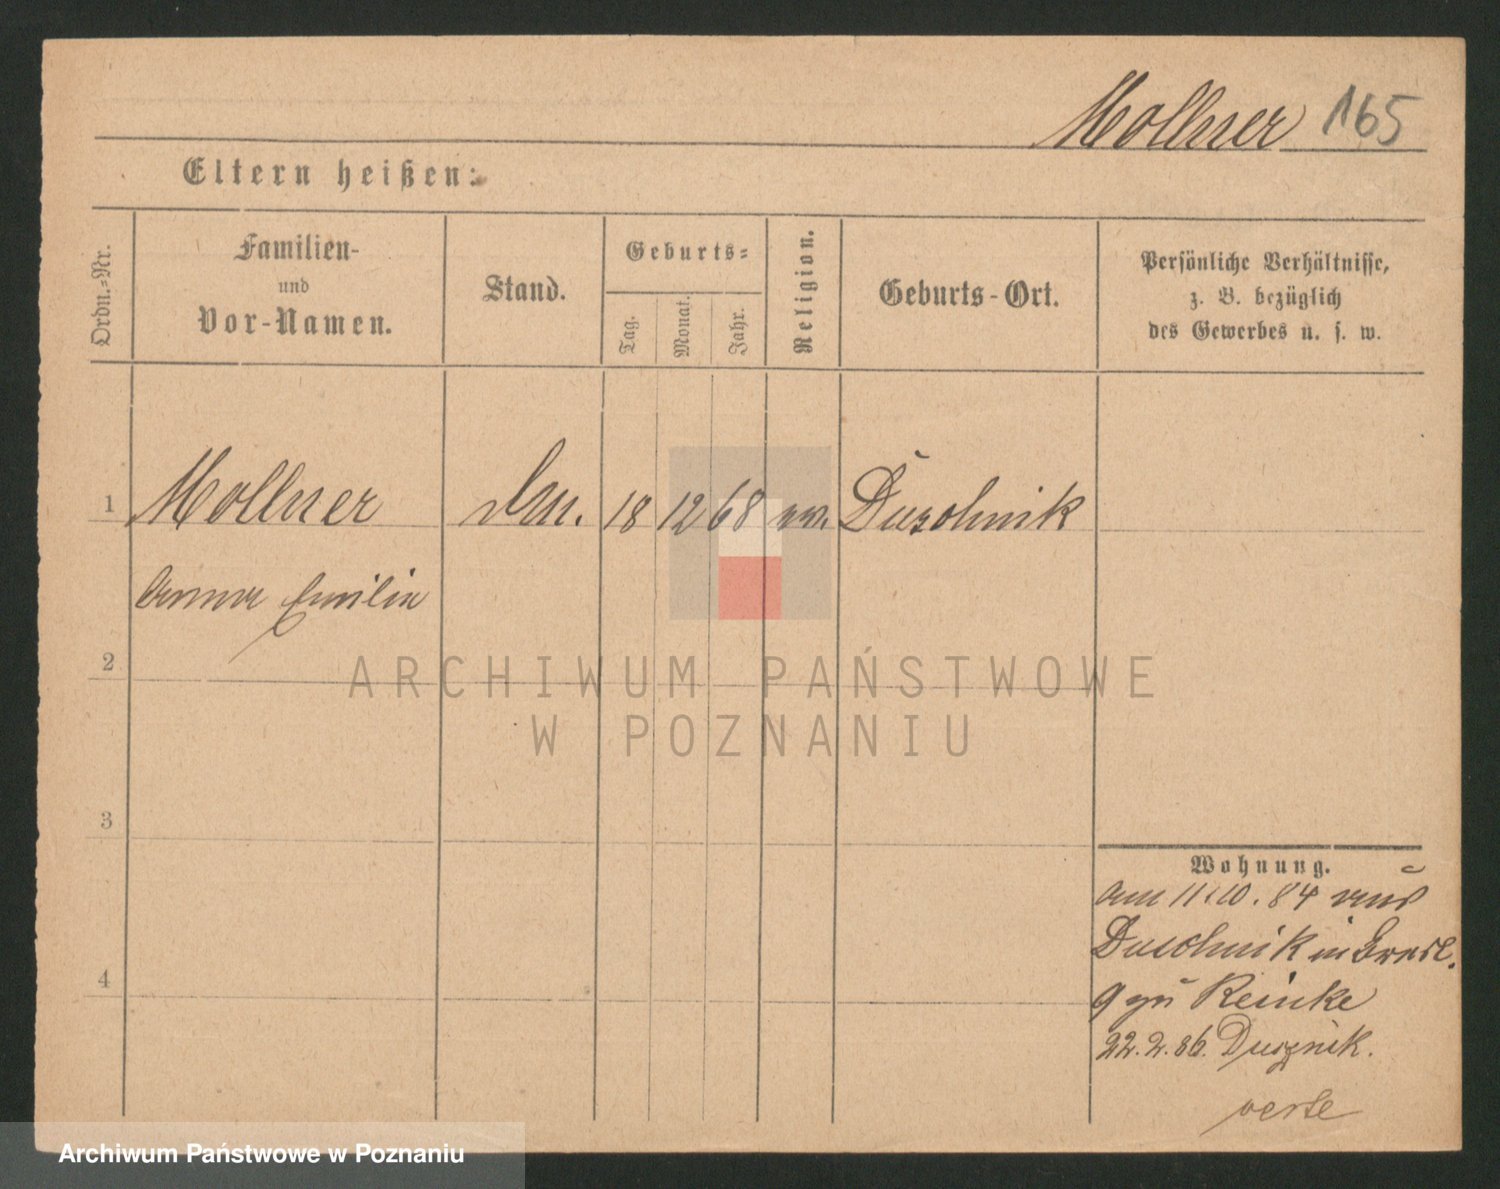 Mollner 165
Eltern heißen:
Ordn.-Nr.
Familien-
und
Vor-Namen.
Stand.
Geburts-
Tag.
Monat.
Jahr.
Religion.
Geburts-Ort.
Persönliche Verhältnisse,
z. B. bezüglich
des Gewerbes u. s. w.
1 Mollner 18 12 68 ev. Duschnik
Anna Emilie
2
3
4
Wohnung.
am 11.10.84 aus
Duschnik in Bresl.
9 zu Reinke
22.2.86. Dusznik.
verte
ARCHIWUM PAŃSTWOWE
W POZNANIU
Archiwum Państwowe w Poznaniu